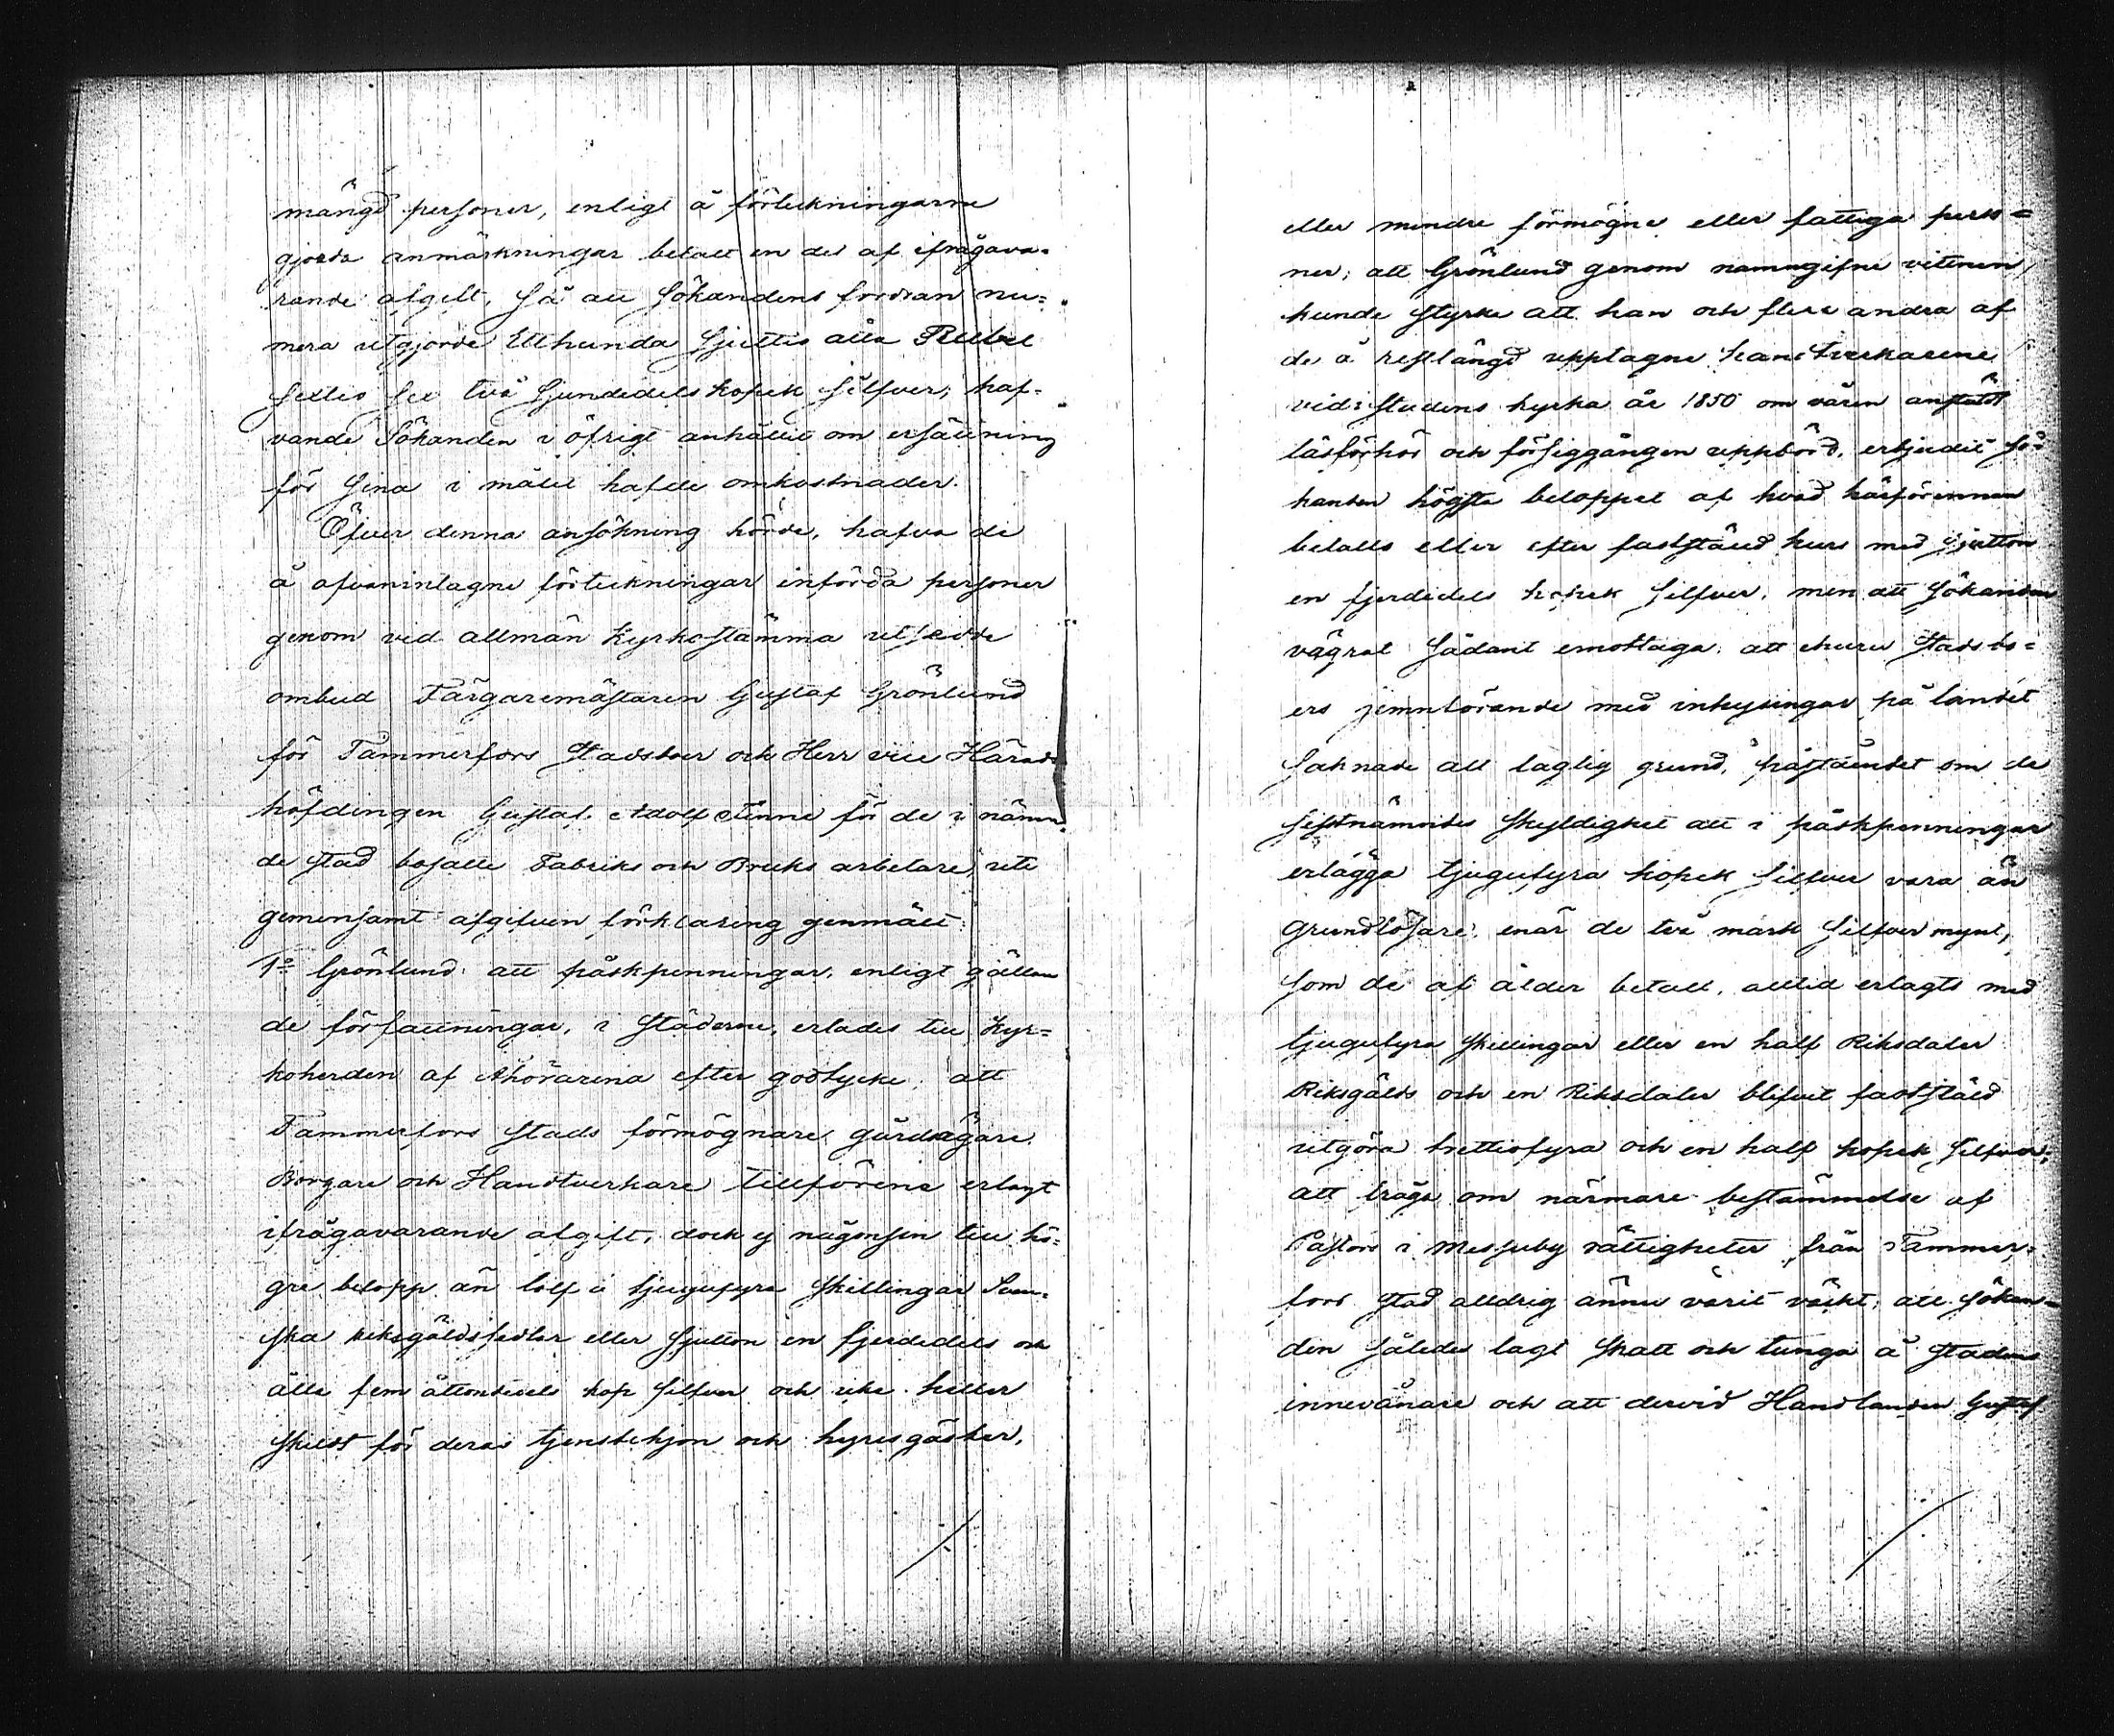 mängd personer, enligt å förteckningarne
gjorda anmärkningar betalt en del af ifrågava-
rande afgift, så att Sökandens fordran nu=
mera utgjorde Etthundra Sjuttio åtta Rubel
sextio sex två sjundedels kopek silfver, haf-
vande Sökanden i öfrigt anhållit om ersättning
för sina i målet hafde omkostnader.
Öfver denna ansökning hörde, hafva de
å ofvanintagne förteckningar införda personer
genom vid allmän Kyrkostämma utsedde
ombud Färgaremästaren Gustaf Grönlund
för Tammerfors Stadsboer och Herr vice Härads
höfdingen Gustaf Adolf Finne för de i nämn
de stad bosatte Fabriks och Bruks arbetare, uti
gemensamt afgifven förklaring genmält:
1o Grönlund: att påskpenningar, enligt gällan
de författningar, i Städerne, erlades till Kyr=
koherden af Åhörarena efter godtycke; att
Tammerfors stads förmögnare gårdsägare,
Borgare och Handtverkare tillförene erlagt
ifrågavarande afgift, dock ej någonsin till hö-
gre belopp än tolf à tjugufyra skillingar Sven-
ska riksgäldssedlar eller sjutton en fjerdedels och
åtta fem åttondedels kop silfver och icke heller
skildt för deras tjenstehjon och hyresgäster,
eller mindre förmögne eller fattiga perso=
ner; att Grönlund genom namngifne vittnen
kunde styrka att han och flere andra af
de å restlängd upptagne handtverkarene
vid stadens kyrka år 1850 om våren anstäldt
läsförhör och försiggången uppbörd, erbjudit Sö-
kanden högsta beloppet af hvad härförinnan
betalts eller efter fastställd kurs med sjutton
en fjerdedels kopek silfver, men att Sökanden
vägrat sådant emottaga; att ehuru Stadsbo=
ers jemnförande med inhysingar på landet
saknade all laglig grund, påståendet om de
sistnämndes skyldighet att i påskpenningar
erlägga tjugufyra kopek silfver vara än
grundlösare; enär de två mark silfvermynt,
som de af ålder betalt, alltid erlagts med
tjugufyra skillingar eller en half Riksdaler
Riksgälds och en Riksdaler blifvit fastställd
utgöra trettiofyra och en half kopek silfver;
att fråga om närmare bestämmelse af
Pastors i Messuby rättigheter från Tammer-
fors stad alldrig ännu varit väckt; att Sökan=
den således lagt skatt och tunga å stadens
innevånare och att dervid Handlanden Gustaf